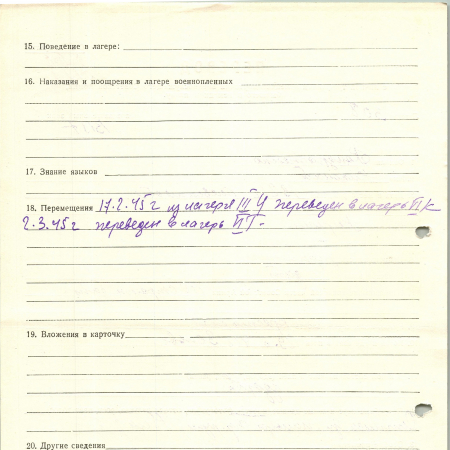 15. Поведение в лагере:
16. Наказания и поощрения в лагере военнопленных
17. Знание языков
18. Перемещения 17.2.45 г из лагеря III У переведен в лагерь II К
2.3.45 г переведен в лагерь VI Г.
19. Вложения в карточку
20. Другие сведения